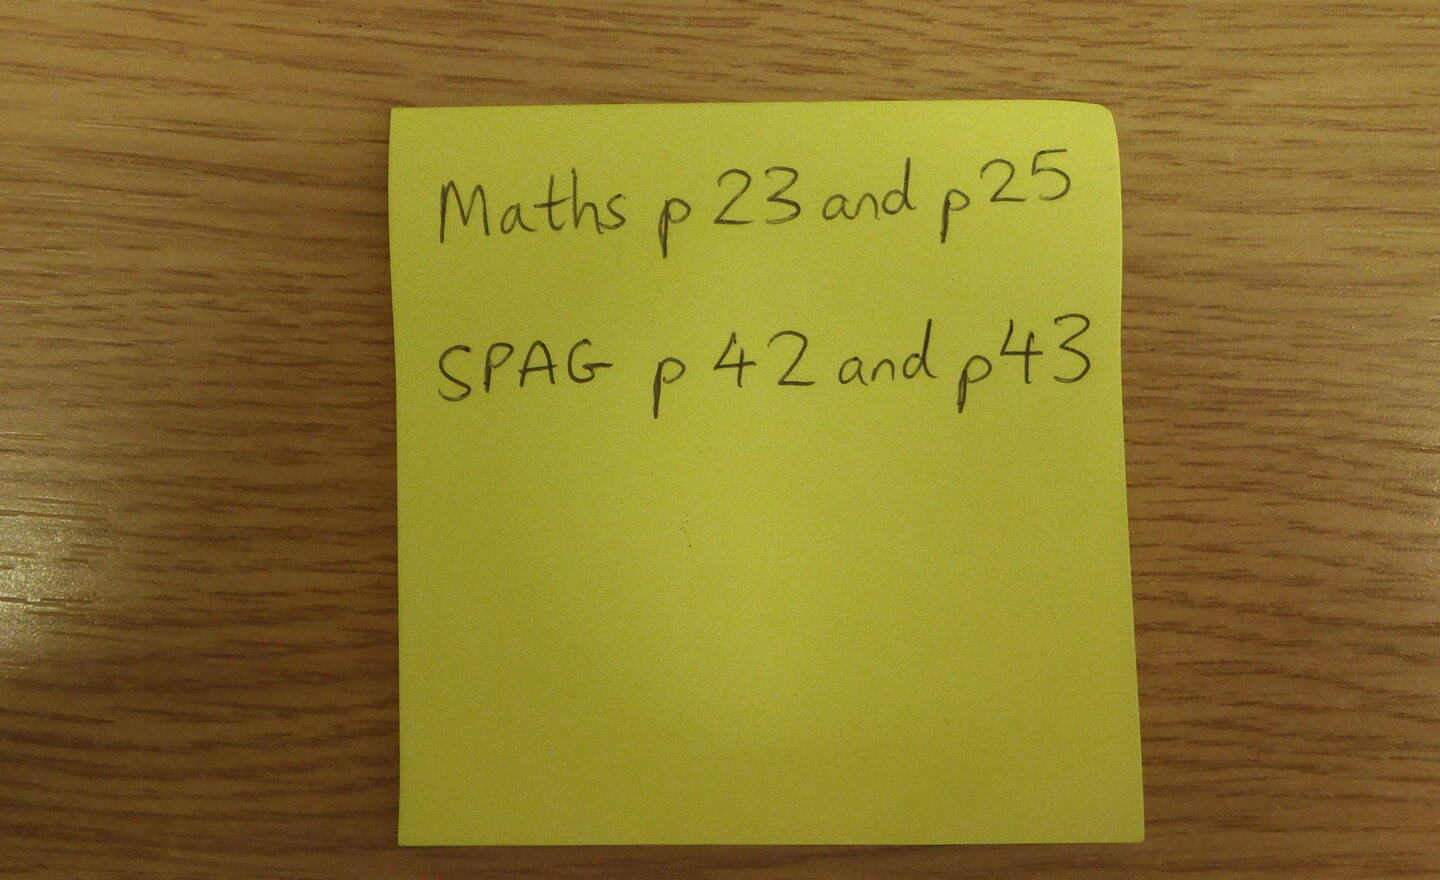 Maths p 23 and p 25
SPAG p 42 and p 43